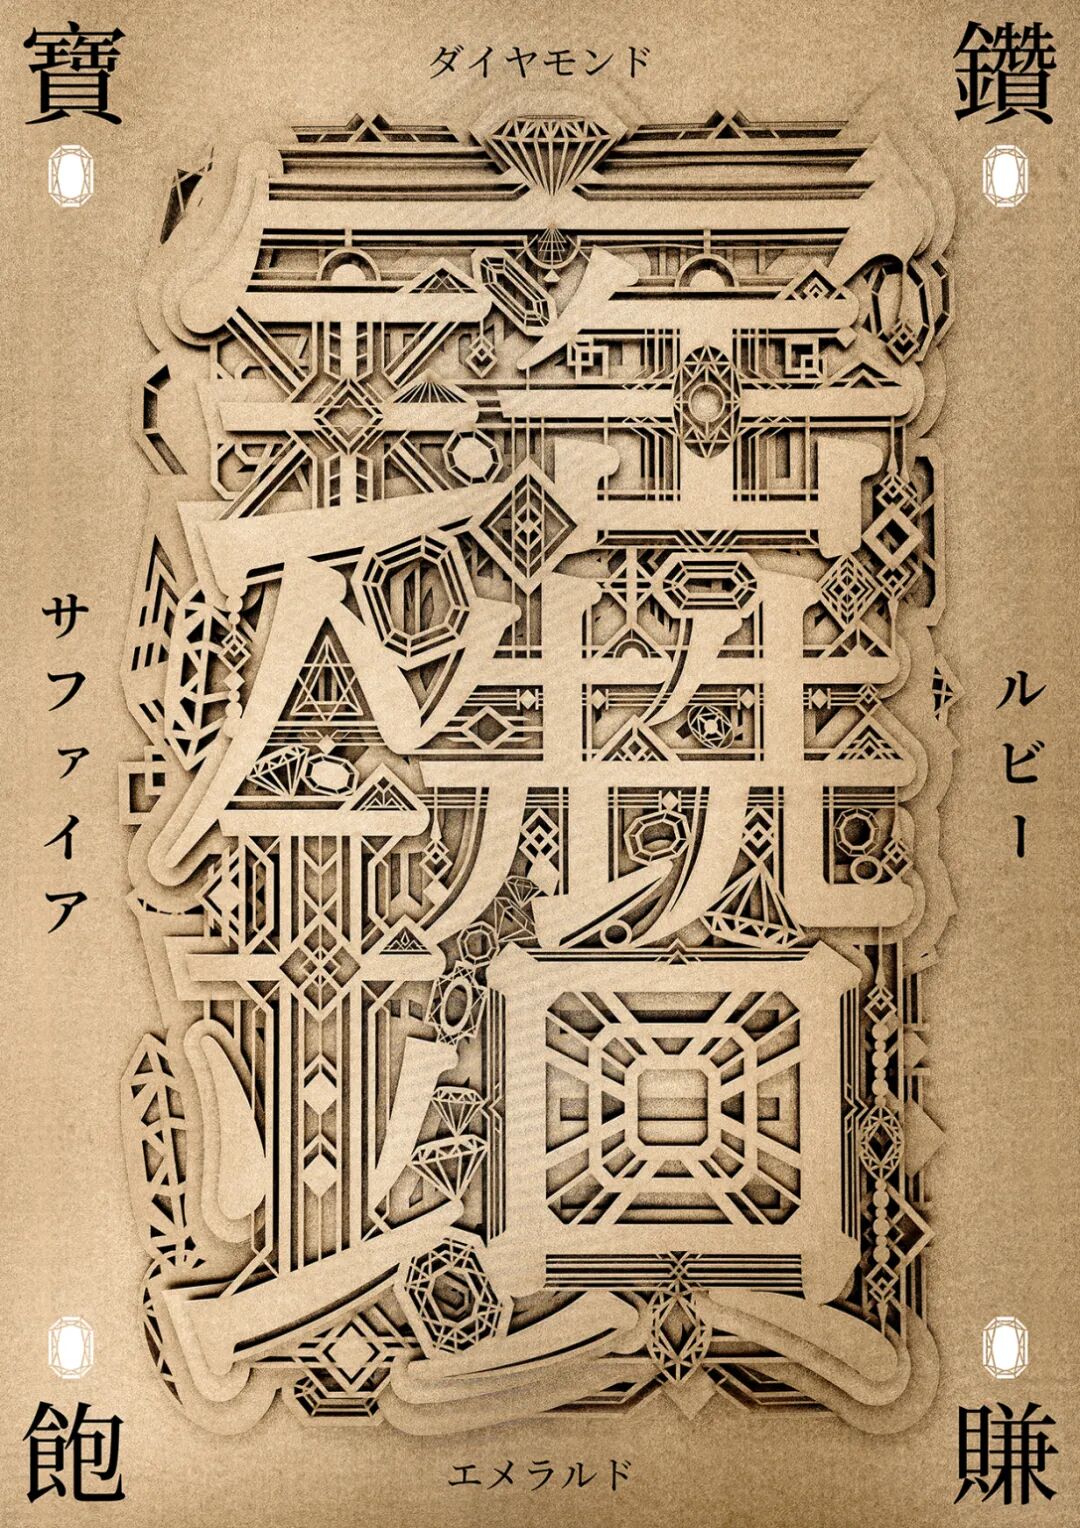 寶
ダイヤモンド
鑽
サファイア
ルビー
飽
エメラルド
賺